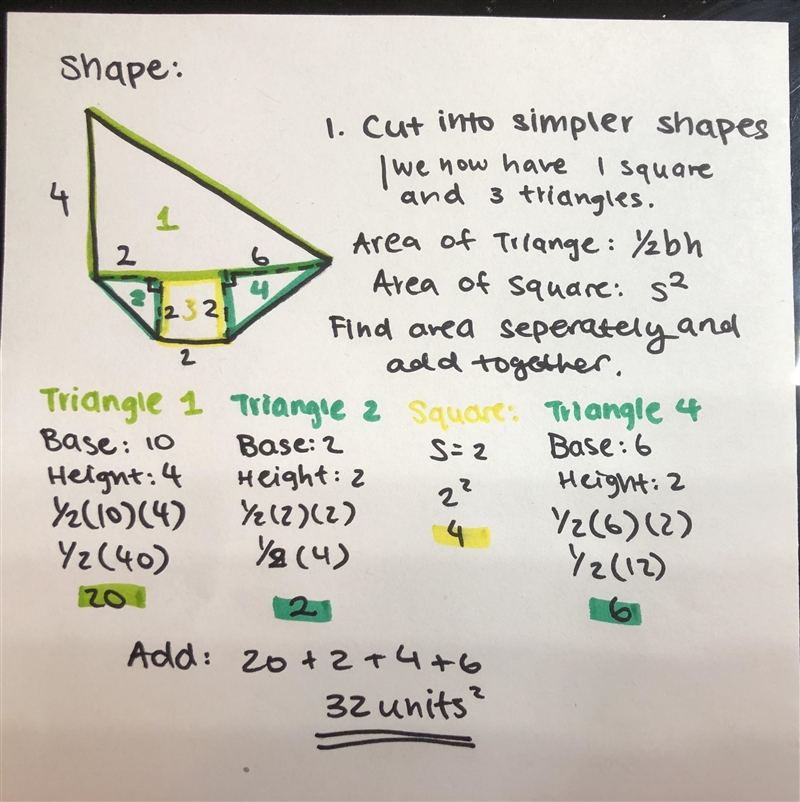 Shape:
4
1
2
6
2
2
3
2
4
2
1. Cut into simpler shapes
we now have 1 square
and 3 triangles.
Area of Triange: ½bh
Area of square: s²
Find area seperately and
add together.
Triangle 1
Base: 10
Height: 4
½(10)(4)
½(40)
20
Triangle 2
Base: 2
Height: 2
½(2)(2)
½(4)
2
Square:
S=2
2²
4
Triangle 4
Base: 6
Height: 2
½(6)(2)
½(12)
6
Add: 20+2+4+6
32 units²